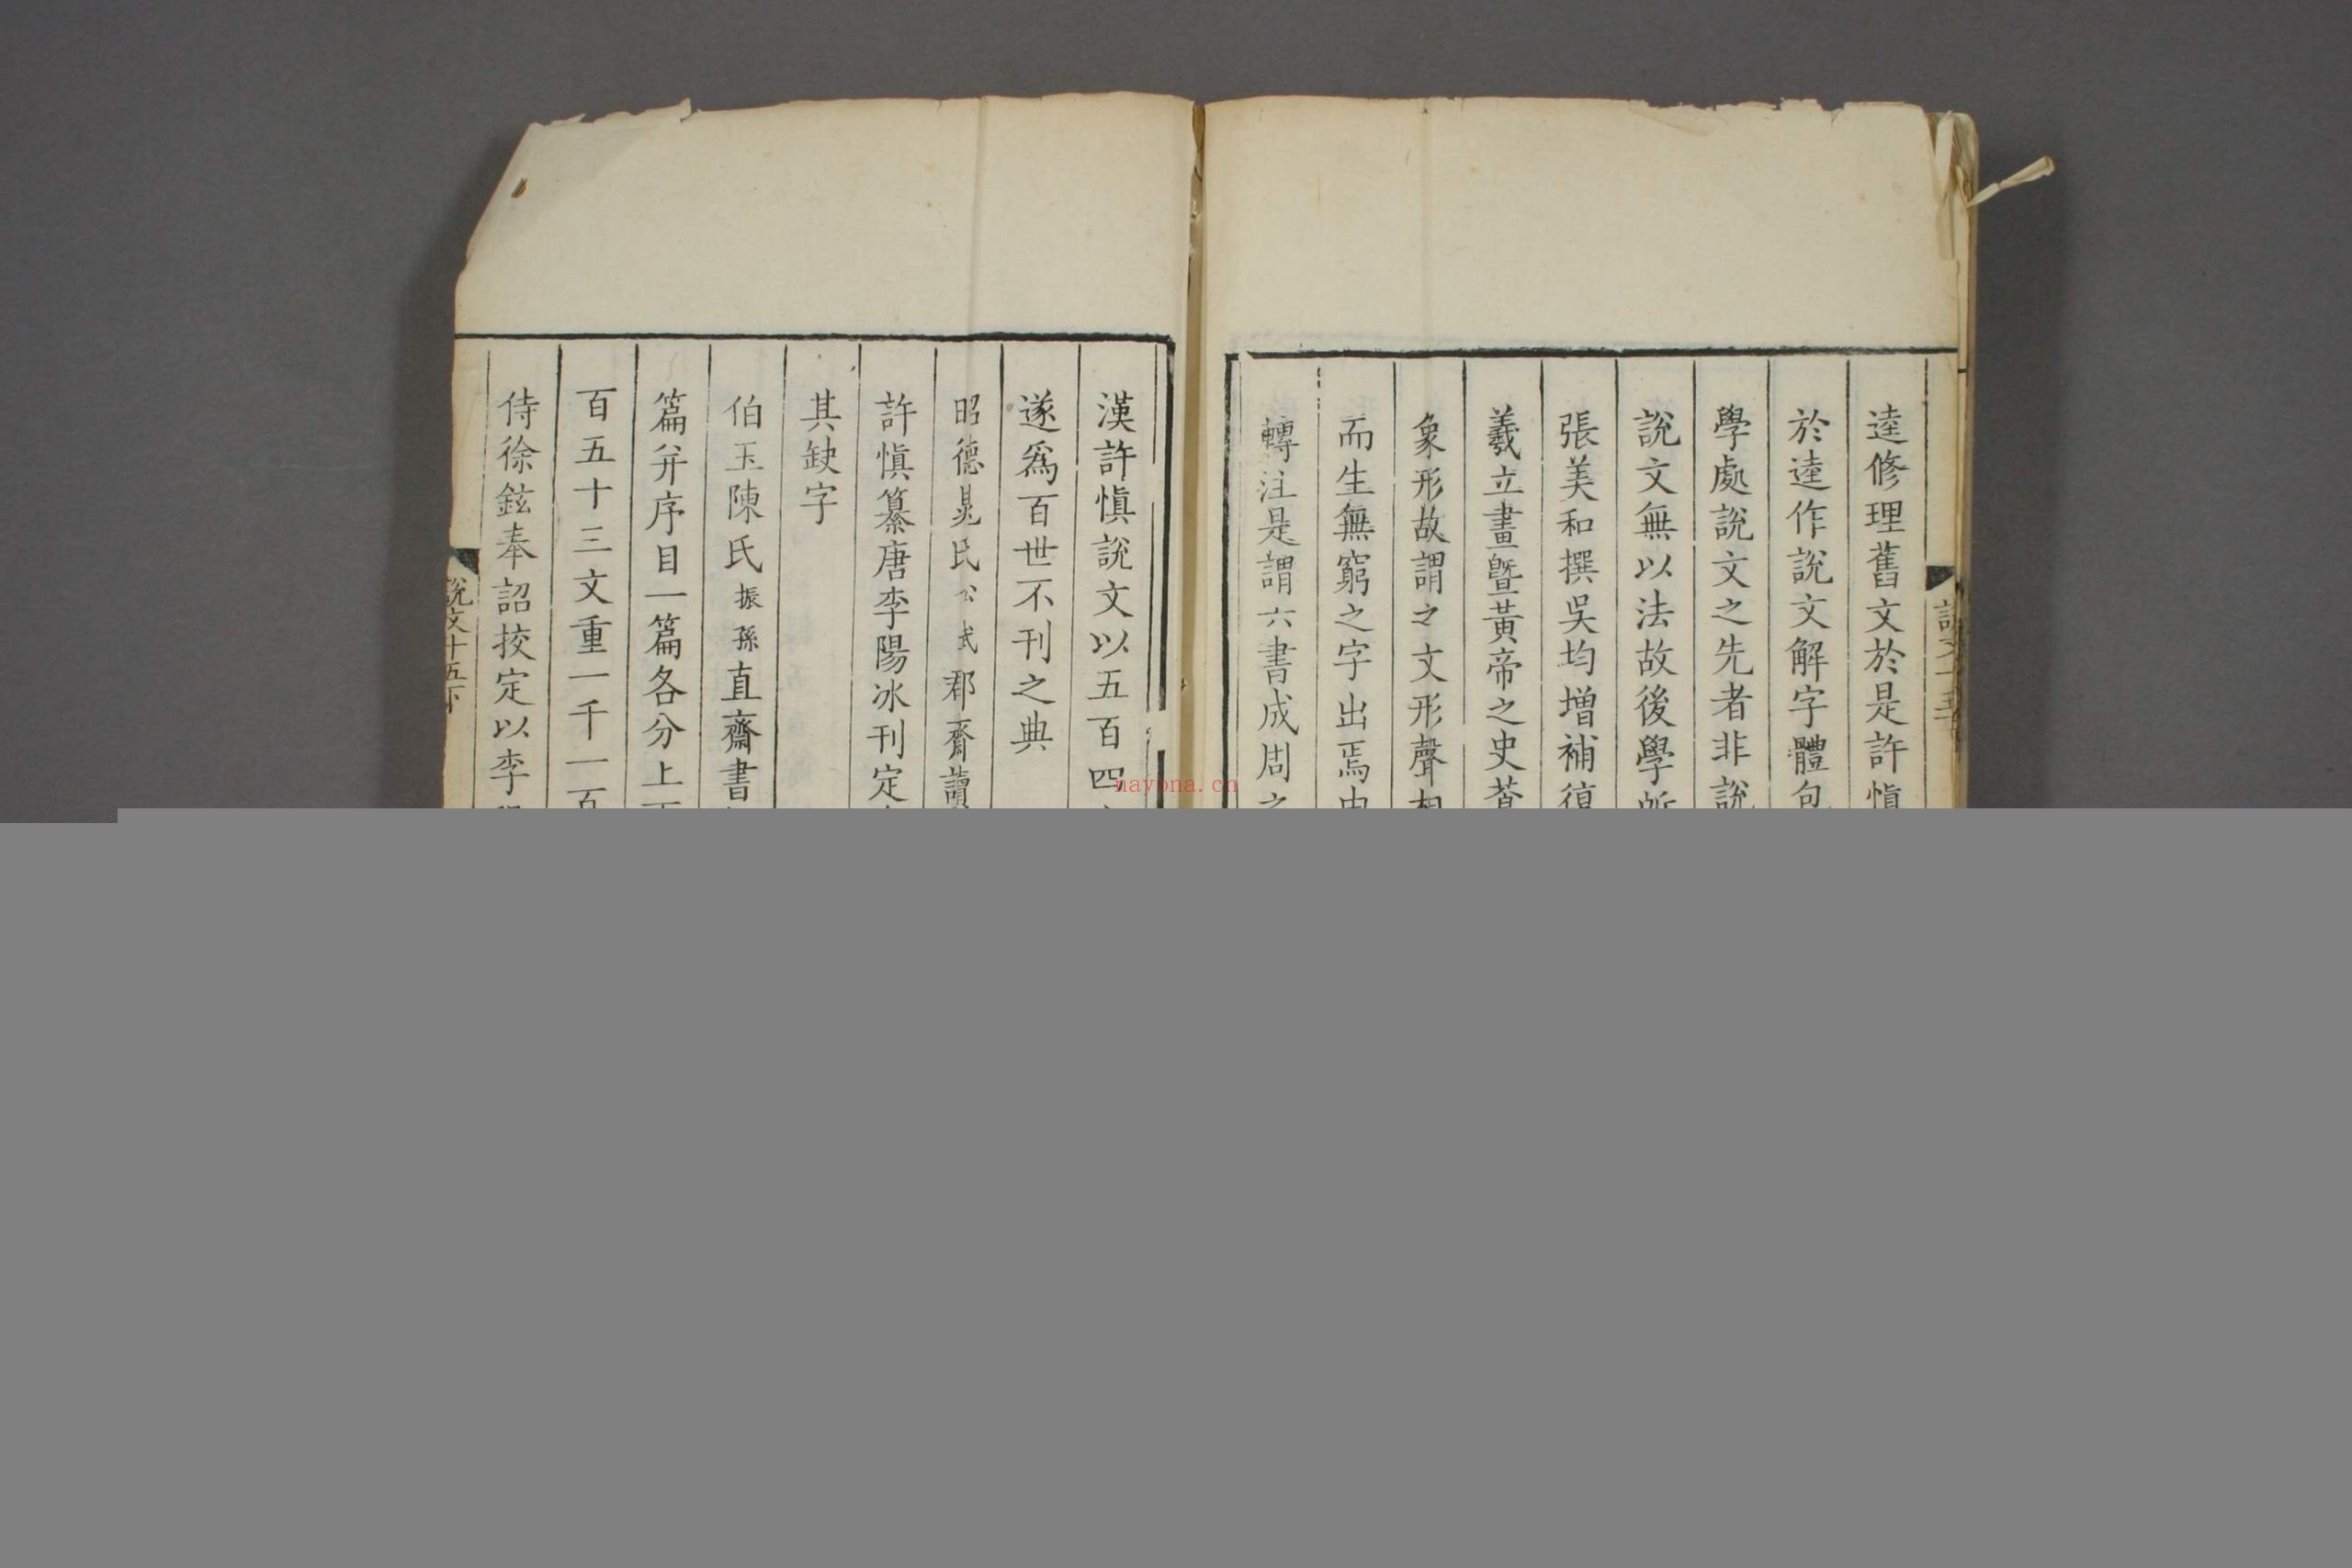 逵修理舊文於是許慎
於逵作說文解字體包
學處說文之先者非說
說文無以法故後學所
張美和撰吳均增補復
羲立畫曁黃帝之史蒼
象形故謂之文形聲相
而生無窮之字出焉由
轉注是謂六書成周之
漢許慎說文以五百四
遂爲百世不刊之典
昭德晁氏公武郡齋讀
許慎纂唐李陽冰刊定
其缺字
伯玉陳氏振孫直齋書
篇并序目一篇各分上下
百五十三文重一千一百
侍徐鉉奉詔挍定以李
說文十五下
nayona.cn